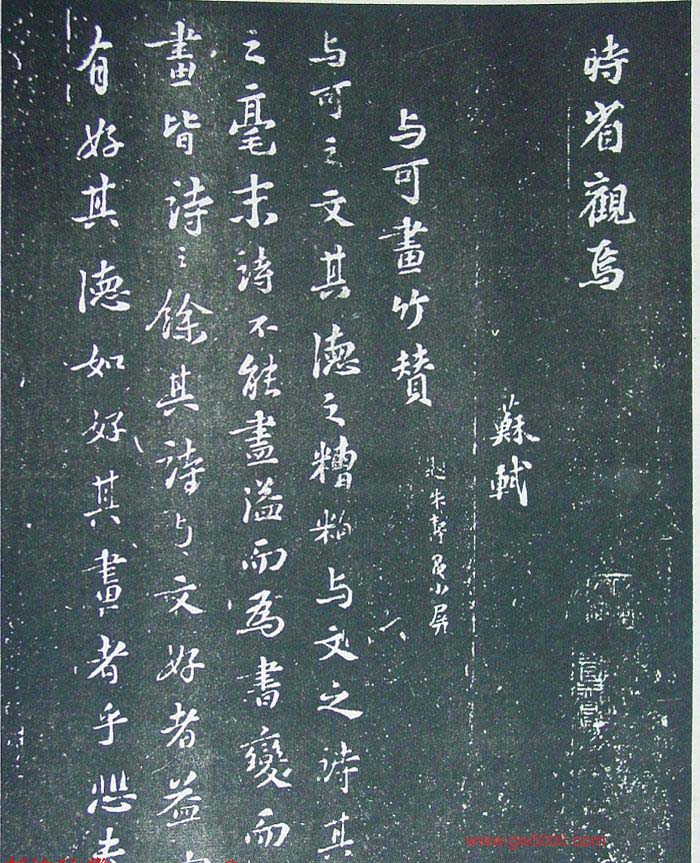 時省觀焉
蘇軾
与可畫竹贊
小屏
与可之文其德之糟粕与文之詩其
之毫末詩不能盡溢而為書變而
畫皆詩之餘其詩与文好者益
有好其德如好其畫者乎悲